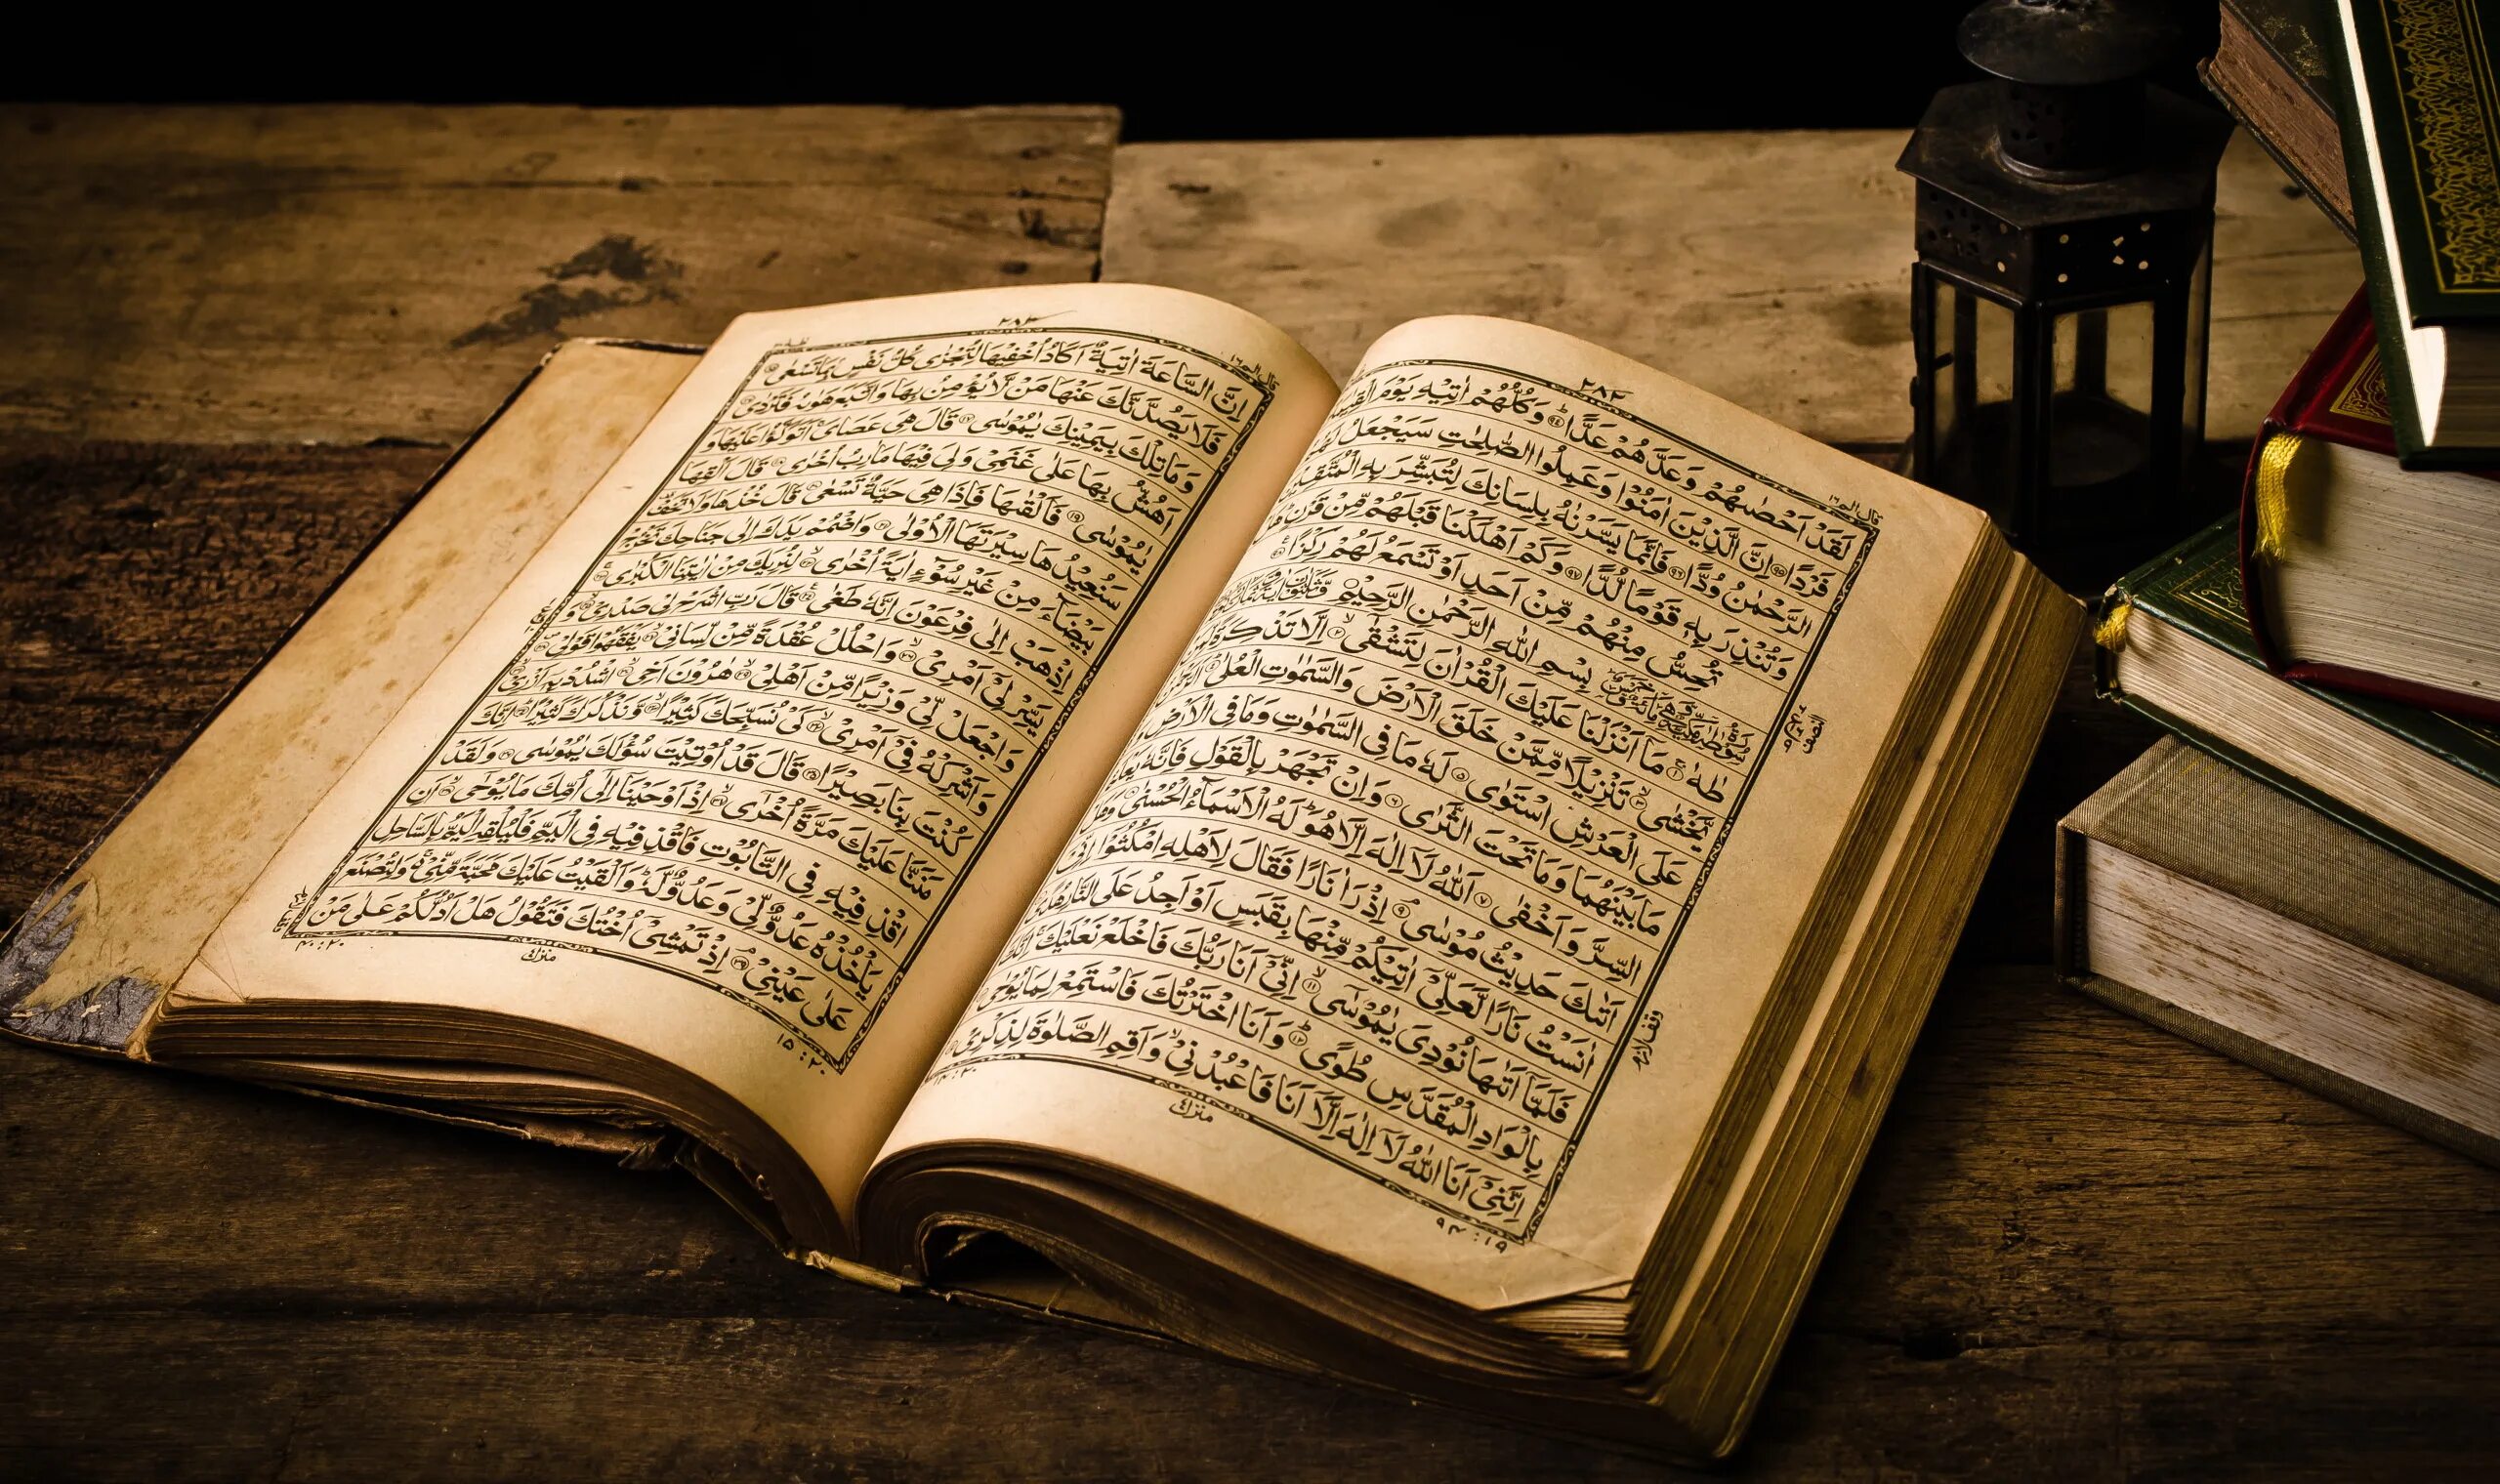 قال الم ١٦
٢٨٢
لَقَدْ اَحْصٰىهُمْ وَعَدَّهُمْ عَدًّا ۝٩٤ وَكُلُّهُمْ اٰتِيْهِ يَوْمَ الْقِيٰمَةِ
فَرْدًا ۝٩٥ اِنَّ الَّذِيْنَ اٰمَنُوْا وَعَمِلُوا الصّٰلِحٰتِ سَيَجْعَلُ لَهُمُ
الرَّحْمٰنُ وُدًّا ۝٩٦ فَاِنَّمَا يَسَّرْنٰهُ بِلِسَانِكَ لِتُبَشِّرَ بِهِ الْمُتَّقِيْنَ
وَتُنْذِرَ بِهٖ قَوْمًا لُّدًّا ۝٩٧ وَكَمْ اَهْلَكْنَا قَبْلَهُمْ مِّنْ قَرْنٍ هَلْ
تُحِسُّ مِنْهُمْ مِّنْ اَحَدٍ اَوْ تَسْمَعُ لَهُمْ رِكْزًا ۝٩٨
بِسْمِ اللّٰهِ الرَّحْمٰنِ الرَّحِيْمِ
طٰهٰ ۝١ مَآ اَنْزَلْنَا عَلَيْكَ الْقُرْاٰنَ لِتَشْقٰىٓ ۝٢ اِلَّا تَذْكِرَةً
يَّخْشٰى ۝٣ تَنْزِيْلًا مِّمَّنْ خَلَقَ الْاَرْضَ وَالسَّمٰوٰتِ الْعُلٰى ۝٤ اَلرَّحْمٰنُ
عَلَى الْعَرْشِ اسْتَوٰى ۝٥ لَهٗ مَا فِى السَّمٰوٰتِ وَمَا فِى الْاَرْضِ
مَا بَيْنَهُمَا وَمَا تَحْتَ الثَّرٰى ۝٦ وَاِنْ تَجْهَرْ بِالْقَوْلِ فَاِنَّهٗ يَعْلَمُ
السِّرَّ وَاَخْفٰى ۝٧ اَللّٰهُ لَآ اِلٰهَ اِلَّا هُوَ ۭ لَهُ الْاَسْمَآءُ الْحُسْنٰى ۝٨ وَهَلْ
اَتٰىكَ حَدِيْثُ مُوْسٰى ۝٩ اِذْ رَاٰ نَارًا فَقَالَ لِاَهْلِهِ امْكُثُوْٓا اِنِّىْٓ
اٰنَسْتُ نَارًا لَّعَلِّىْٓ اٰتِيْكُمْ مِّنْهَا بِقَبَسٍ اَوْ اَجِدُ عَلَى النَّارِ هُدًى
فَلَمَّآ اَتٰىهَا نُوْدِىَ يٰمُوْسٰى ۝١١ اِنِّىْٓ اَنَا رَبُّكَ فَاخْلَعْ نَعْلَيْكَ ۚ اِنَّكَ
بِالْوَادِ الْمُقَدَّسِ طُوًى ۝١٢ وَاَنَا اخْتَرْتُكَ فَاسْتَمِعْ لِمَا يُوْحٰى
اِنَّنِىْٓ اَنَا اللّٰهُ لَآ اِلٰهَ اِلَّآ اَنَا فَاعْبُدْنِىْ ۙ وَاَقِمِ الصَّلٰوةَ لِذِكْرِىْ
١٩ : ٩٤
٢٠ : ١٤
قال الم ١٦
٢٨٣
اِنَّ السَّاعَةَ اٰتِيَةٌ اَكَادُ اُخْفِيْهَا لِتُجْزٰى كُلُّ نَفْسٍۢ بِمَا تَسْعٰى ۝١٥
فَلَا يَصُدَّنَّكَ عَنْهَا مَنْ لَّا يُؤْمِنُ بِهَا وَاتَّبَعَ هَوٰىهُ فَتَرْدٰى ۝١٦
وَمَا تِلْكَ بِيَمِيْنِكَ يٰمُوْسٰى ۝١٧ قَالَ هِىَ عَصَاىَ ۚ اَتَوَكَّؤُا عَلَيْهَا وَ
اَهُشُّ بِهَا عَلٰى غَنَمِىْ وَلِىَ فِيْهَا مَاٰرِبُ اُخْرٰى ۝١٨ قَالَ اَلْقِهَا
يٰمُوْسٰى ۝١٩ فَاَلْقٰىهَا فَاِذَا هِىَ حَيَّةٌ تَسْعٰى ۝٢٠ قَالَ خُذْهَا وَلَا تَخَفْ
سَنُعِيْدُهَا سِيْرَتَهَا الْاُوْلٰى ۝٢١ وَاضْمُمْ يَدَكَ اِلٰى جَنَاحِكَ تَخْرُجْ
بَيْضَآءَ مِنْ غَيْرِ سُوْٓءٍ اٰيَةً اُخْرٰى ۝٢٢ لِنُرِيَكَ مِنْ اٰيٰتِنَا الْكُبْرٰى ۝٢٣
اِذْهَبْ اِلٰى فِرْعَوْنَ اِنَّهٗ طَغٰى ۝٢٤ قَالَ رَبِّ اشْرَحْ لِىْ صَدْرِىْ ۝٢٥ وَ
يَسِّرْ لِىْٓ اَمْرِىْ ۝٢٦ وَاحْلُلْ عُقْدَةً مِّنْ لِّسَانِىْ ۝٢٧ يَفْقَهُوْا قَوْلِىْ ۝٢٨
وَاجْعَلْ لِّىْ وَزِيْرًا مِّنْ اَهْلِىْ ۝٢٩ هٰرُوْنَ اَخِى ۝٣٠ اشْدُدْ بِهٖٓ اَزْرِىْ ۝٣١
وَاَشْرِكْهُ فِىْٓ اَمْرِىْ ۝٣٢ كَىْ نُسَبِّحَكَ كَثِيْرًا ۝٣٣ وَّنَذْكُرَكَ كَثِيْرًا ۝٣٤ اِنَّكَ
كُنْتَ بِنَا بَصِيْرًا ۝٣٥ قَالَ قَدْ اُوْتِيْتَ سُؤْلَكَ يٰمُوْسٰى ۝٣٦ وَلَقَدْ
مَنَنَّا عَلَيْكَ مَرَّةً اُخْرٰىٓ ۝٣٧ اِذْ اَوْحَيْنَآ اِلٰٓى اُمِّكَ مَا يُوْحٰىٓ ۝٣٨ اَنِ
اقْذِفِيْهِ فِى التَّابُوْتِ فَاقْذِفِيْهِ فِى الْيَمِّ فَلْيُلْقِهِ الْيَمُّ بِالسَّاحِلِ
يَاْخُذْهُ عَدُوٌّ لِّىْ وَعَدُوٌّ لَّهٗ ۭ وَاَلْقَيْتُ عَلَيْكَ مَحَبَّةً مِّنِّىْ ۚ وَلِتُصْنَعَ
عَلٰى عَيْنِىْ ۝٣٩ اِذْ تَمْشِىْٓ اُخْتُكَ فَتَقُوْلُ هَلْ اَدُلُّكُمْ عَلٰى مَنْ
٢٠ : ١٥
٢٠ : ٤٠